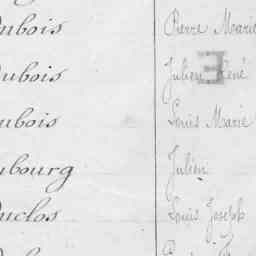 ubois Pierre Marie
ubois Julien René
ubois Louis Marie
ubourg Julien
uclos Louis Joseph